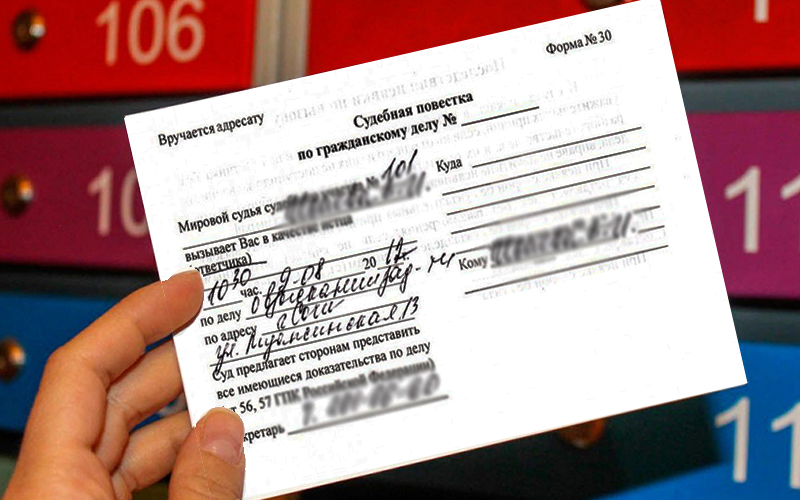 106
Форма № 30
Вручается адресату
Судебная повестка
по гражданскому делу №
Мировой судья № 101
вызывает Вас в качестве истца
(ответчика)
10 30 час. 9.08 20 12.
по делу о взыскании зад-ти
по адресу г. Сочи
ул.
13
Суд предлагает сторонам представить
все имеющиеся доказательства по делу
56, 57 ГПК Российской Федерации)
кретарь
Куда
Кому
10
11
11